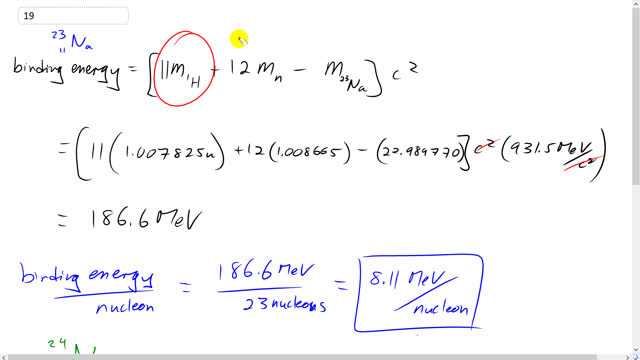 19
²³₁₁Na
binding energy = [11m₁H + 12 mₙ − m₂₃Na] c²
= [11(1.007825u) + 12(1.008665) − (22.989770)] c² (931.5 MeV/c²)
= 186.6 MeV
binding energy/nucleon = 186.6 MeV/23 nucleons = 8.11 MeV/nucleon
24